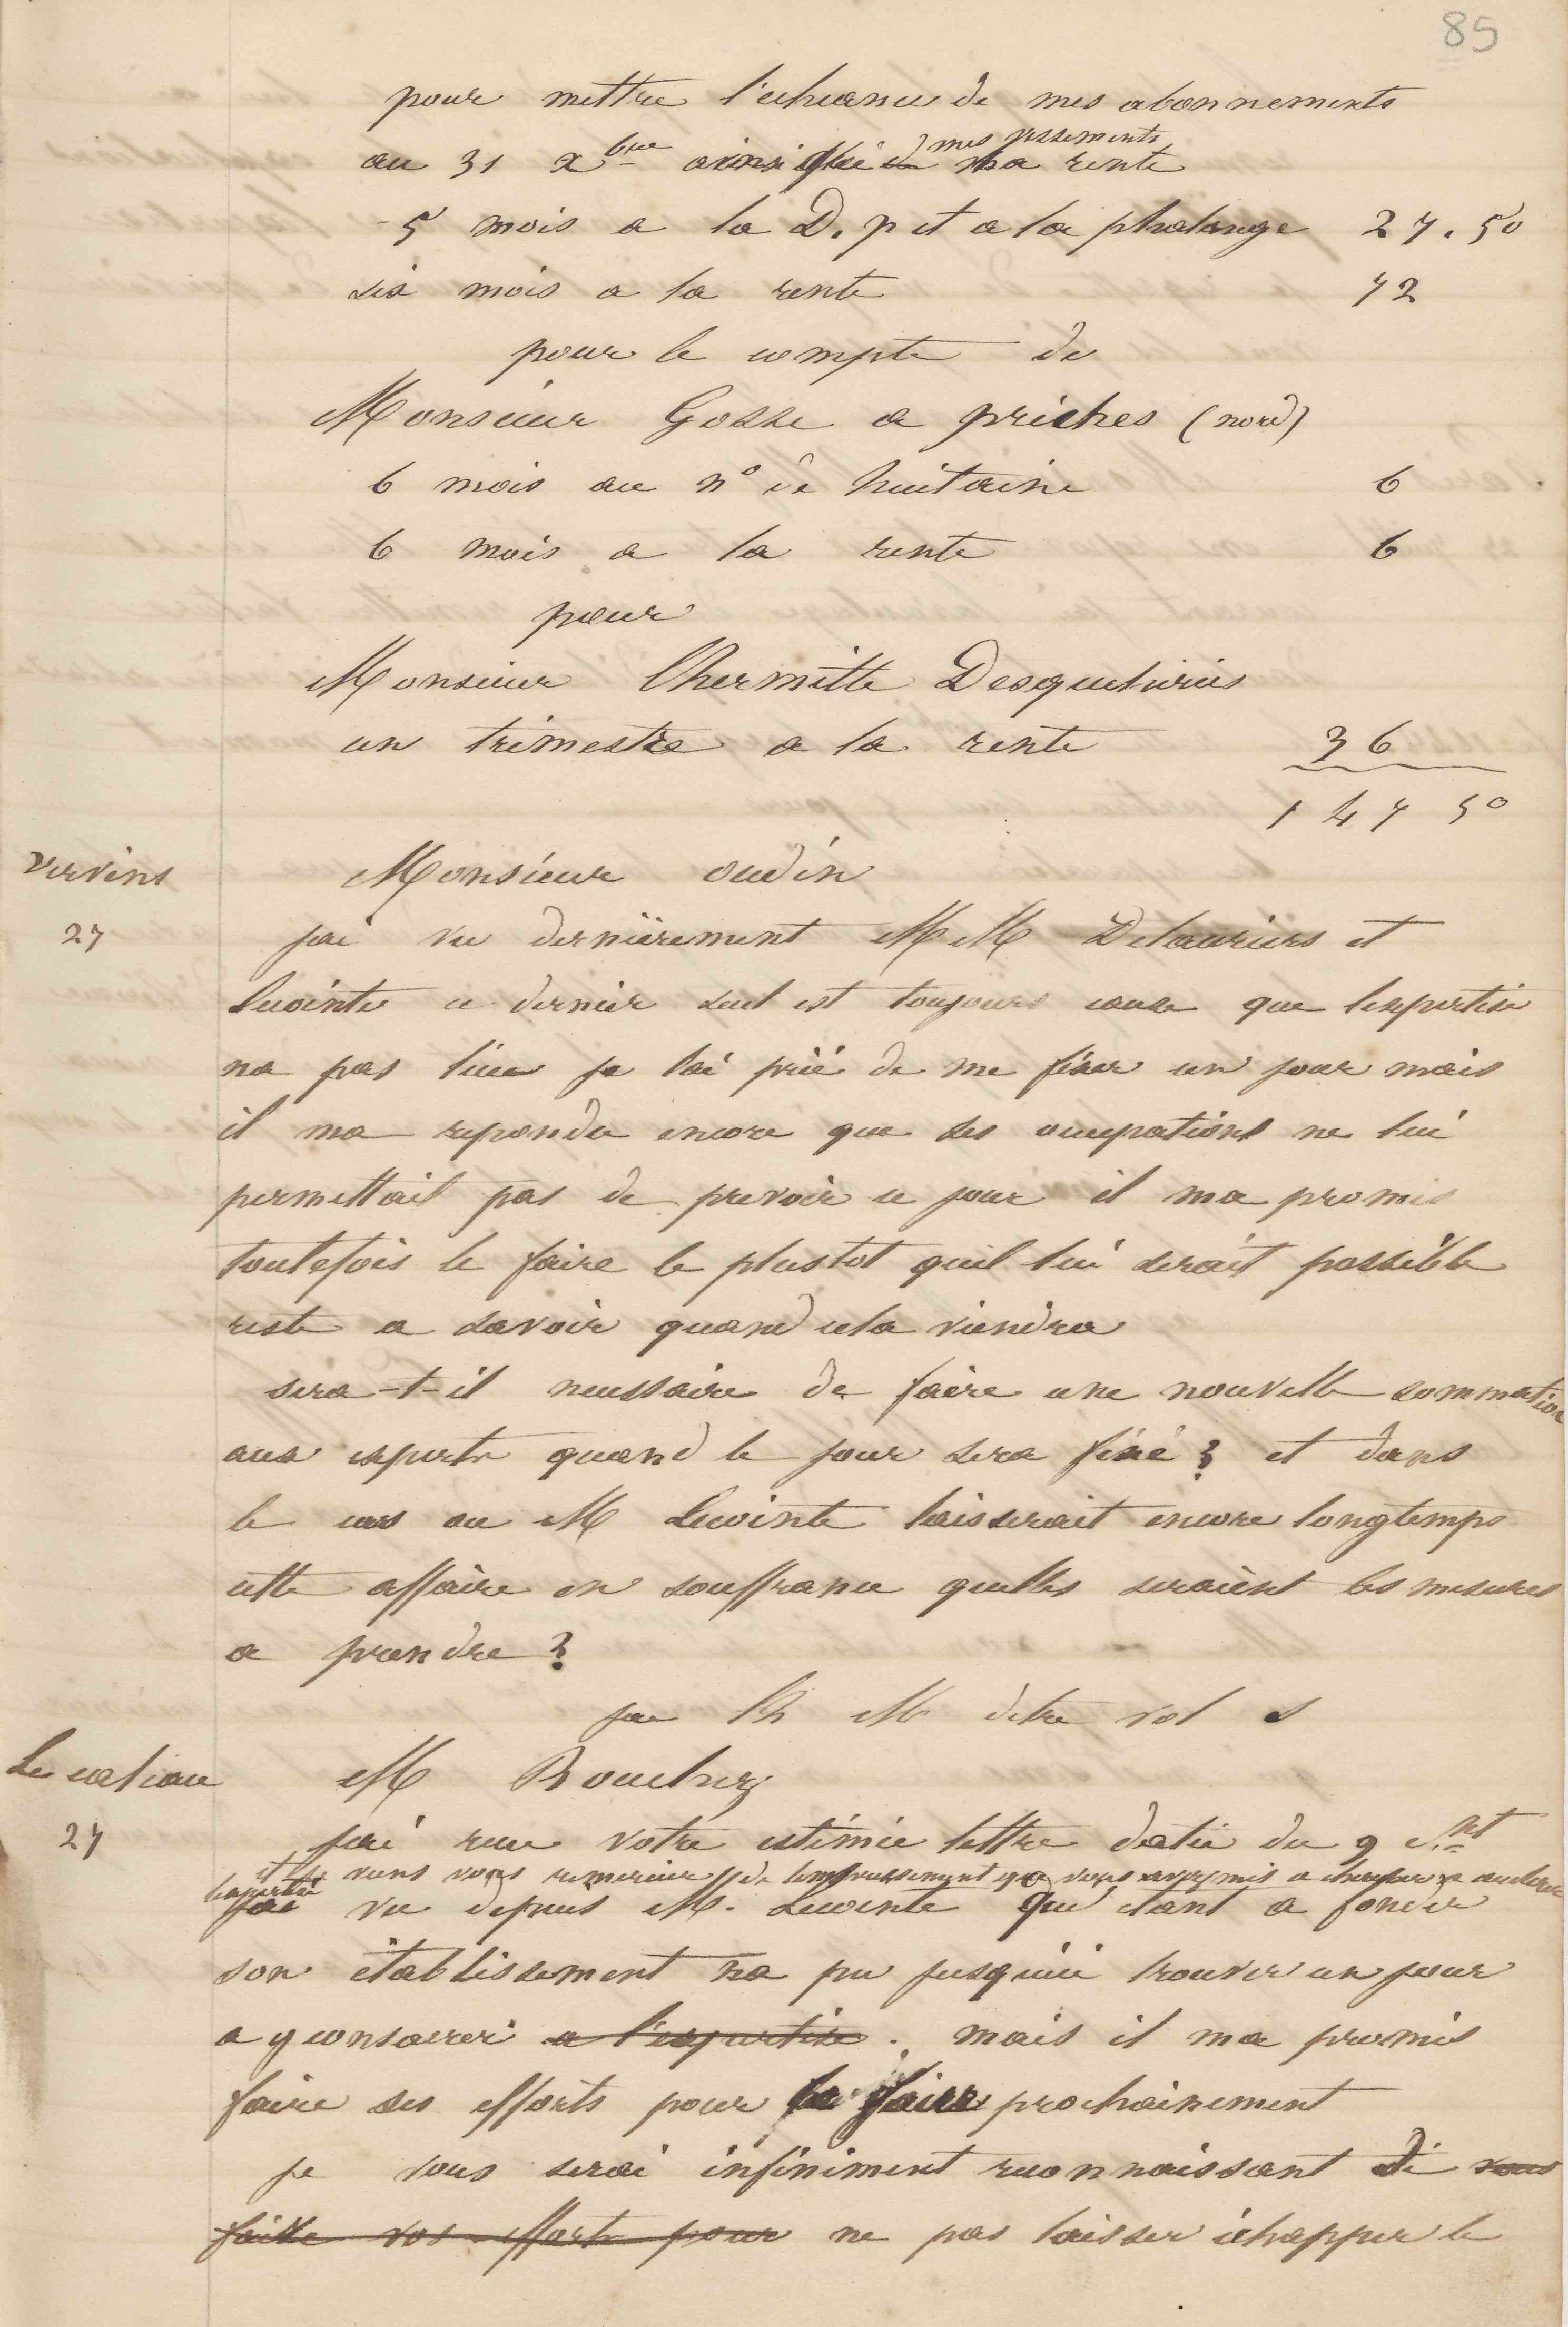 85
pour mettre l'echeance de mes abonnements
au 31 xbre ainsi que mes versements
ma rente
5 mois a la D. p et a la phalange 27.50
six mois a la rente 72
pour le compte de
Monsieur Gosse a prisches (nord)
6 mois au n° de huitaine 6
6 mois a la rente 6
pour
Monsieur Lhermitte Desquehéries
un trimestre a la rente 36
147 50
vervins
27
Monsieur oudin
jai vu dernièrement MM Delauriers et
lecointe ce dernier seul est toujours cause que lexpertise
na pas lieu je lai prié de me fixer un jour mais
il ma repondu encore que ses occupations ne lui
permettait pas de prevoir ce jour il ma promis
toutefois le faire le plustot quil lui serait possible
reste a savoir quand cela viendra
sera-t-il necessaire de faire une nouvelle sommation
aux experts quand le jour sera fixé ? et dans
le cas ou M Lecointe laisserait encore longtemps
cette affaire en souffrance quelles seraient les mesures
a prendre ?
jai lh M detre vot s
Le cateau
27
M Bouchez
jai recu votre estimée lettre datée du 9 ct
et je viens vous remercier de lempressement que vous avez mis a
lexpertise
jai vu depuis M. Lecointe qui etant a fonder
son établissement na pu jusquici trouver un jour
a y consacrer a l'expertise. mais il ma promis
faire ses efforts pour la faire prochainement
je vous serai infiniment reconnaissant de vous
faire vos efforts pour ne pas laisser échapper le